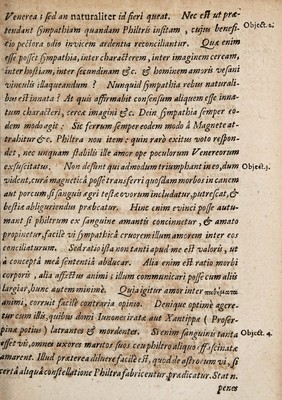 Venerea: sed an naturaliter id fieri queat. Nec est ut præ-
tendant sympathiam quandam Philtris insitam, cujus benefi- Object. 2.
cio pectora odio invicem ardentia reconciliantur. Qua enim
esse posset sympathia, inter characterem, inter imaginem ceream,
inter hostiam, inter secundinam &c. & hominem amoris vesani
vinculis illaqueandum? Nunquid sympathia rebus naturali-
bus est innata? At quis affirmabit consensum aliquem esse inna-
tum characteri, cereæ imagini &c. Dein sympathia semper eo-
dem modo agit: Sic ferrum semper eodem modo à Magnete at-
trahitur &c. Philtra non item: quin rarò exitus voto respon-
det, nec unquam stabilis ille amor ope poculorum Venereorum
exsuscitatur. Non desunt qui admodum triumphant in eo, dum Object. 3.
vident, curâ magneticâ posse transferri quosdam morbos in canem
aut porcum, si sanguis ægri testæ ovorum includatur, putrescat, &
bestiæ abliguriendus prædicatur. Hinc enim evinci posse autu-
mant si philtrum ex sanguine amantis concinnetur, & amato
propinetur, facilè vi sympathicâ cruorem illum amorem inter eos
conciliaturum. Sed ratio ista non tanti apud me est valoris, ut
à conceptâ meâ sententiâ abducar. Alia enim est ratio morbi
corporii, alia affectus animi: illum communicari posse cum aliis
largiar, hunc autem minimè. Qui igitur amor inter
animi, corruit facilè contraria opinio. Denique optimè agere-
tur cum illis, quibus domi Iunones iratæ aut Xantippæ (Proser-
pinæ potius) latrantes & mordentes. Si enim sanguinis tanta Object. 4.
esset vis, omnes uxores maritos suos ceu philtro aliquo effascinatæ
amarent. Illud præterea diluere facilè est, quod de astrorum vi, si
certâ aliquâ constellatione Philtra fabricentur, prædicatur. Stat
penes